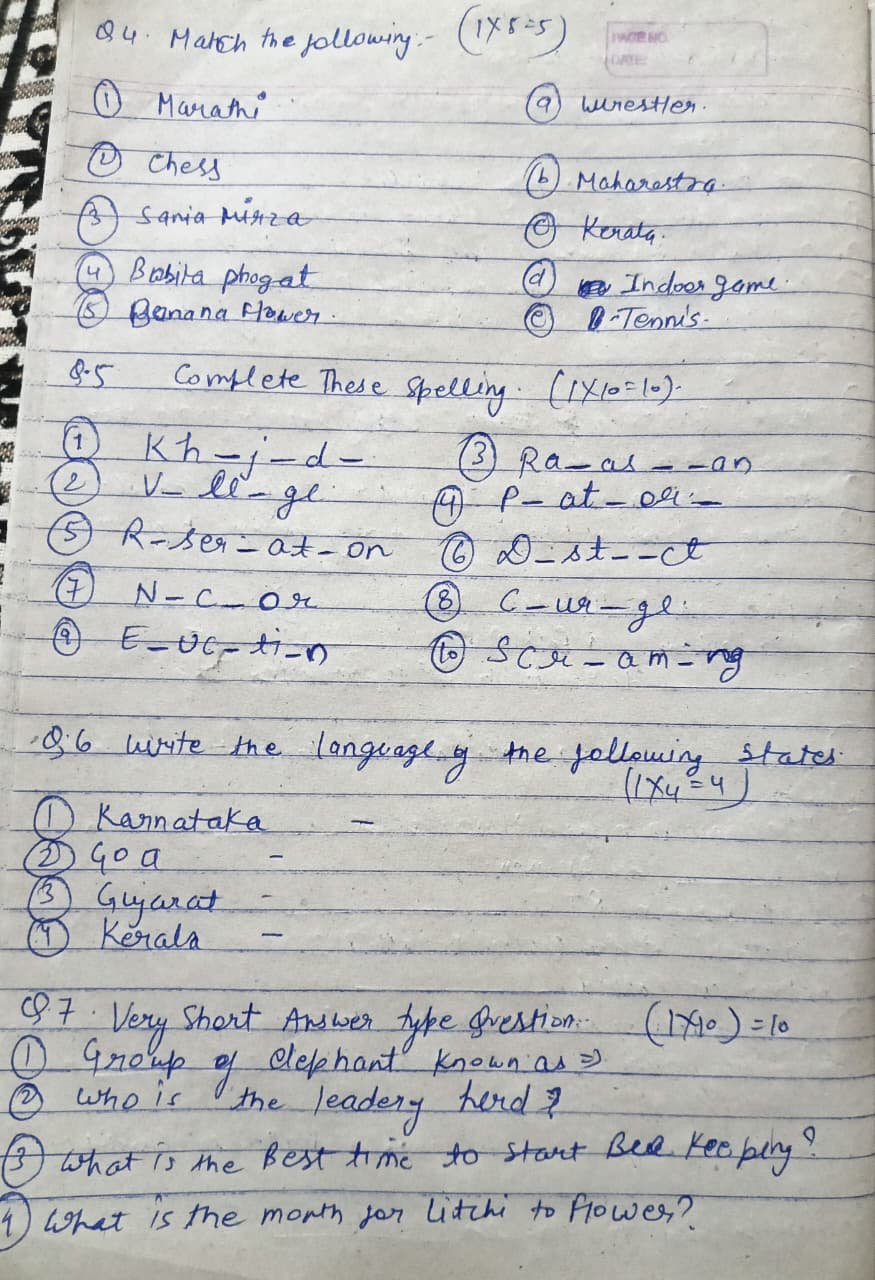 Q4. Match the following:- (1X5=5)
PAGE NO.
DATE:
① Marathi ⓐ wrestler.
② Chess ⓑ Maharestra.
③ Sania Mirza ⓒ Kerala.
④ Babita phogat ⓓ Indoor game.
⑤ Banana Flower. ⓔ Tennis.
Q.5 Complete These Spelling. (1X10=10).
① Kh_j_d_ ③ Ra_as__an
② V_ll_ge ④ P_at_or_
⑤ R_ser_at_on ⑥ D_st__ct
⑦ N_c_or ⑧ C_ur_ge
⑨ E_uc_ti_n ⑩ Scr_am_ng
Q.6 Write the language of the following states.
(1X4=4)
① Karnataka -
② Goa -
③ Gujarat -
④ Kerala -
Q.7. Very Short Answer type Question. (1X10)=10
① Group of elephant known as ⇒
② who is the leaderg herd?
③ What is the Best time to start Bee Keeping?
④ What is the month for litchi to flower?